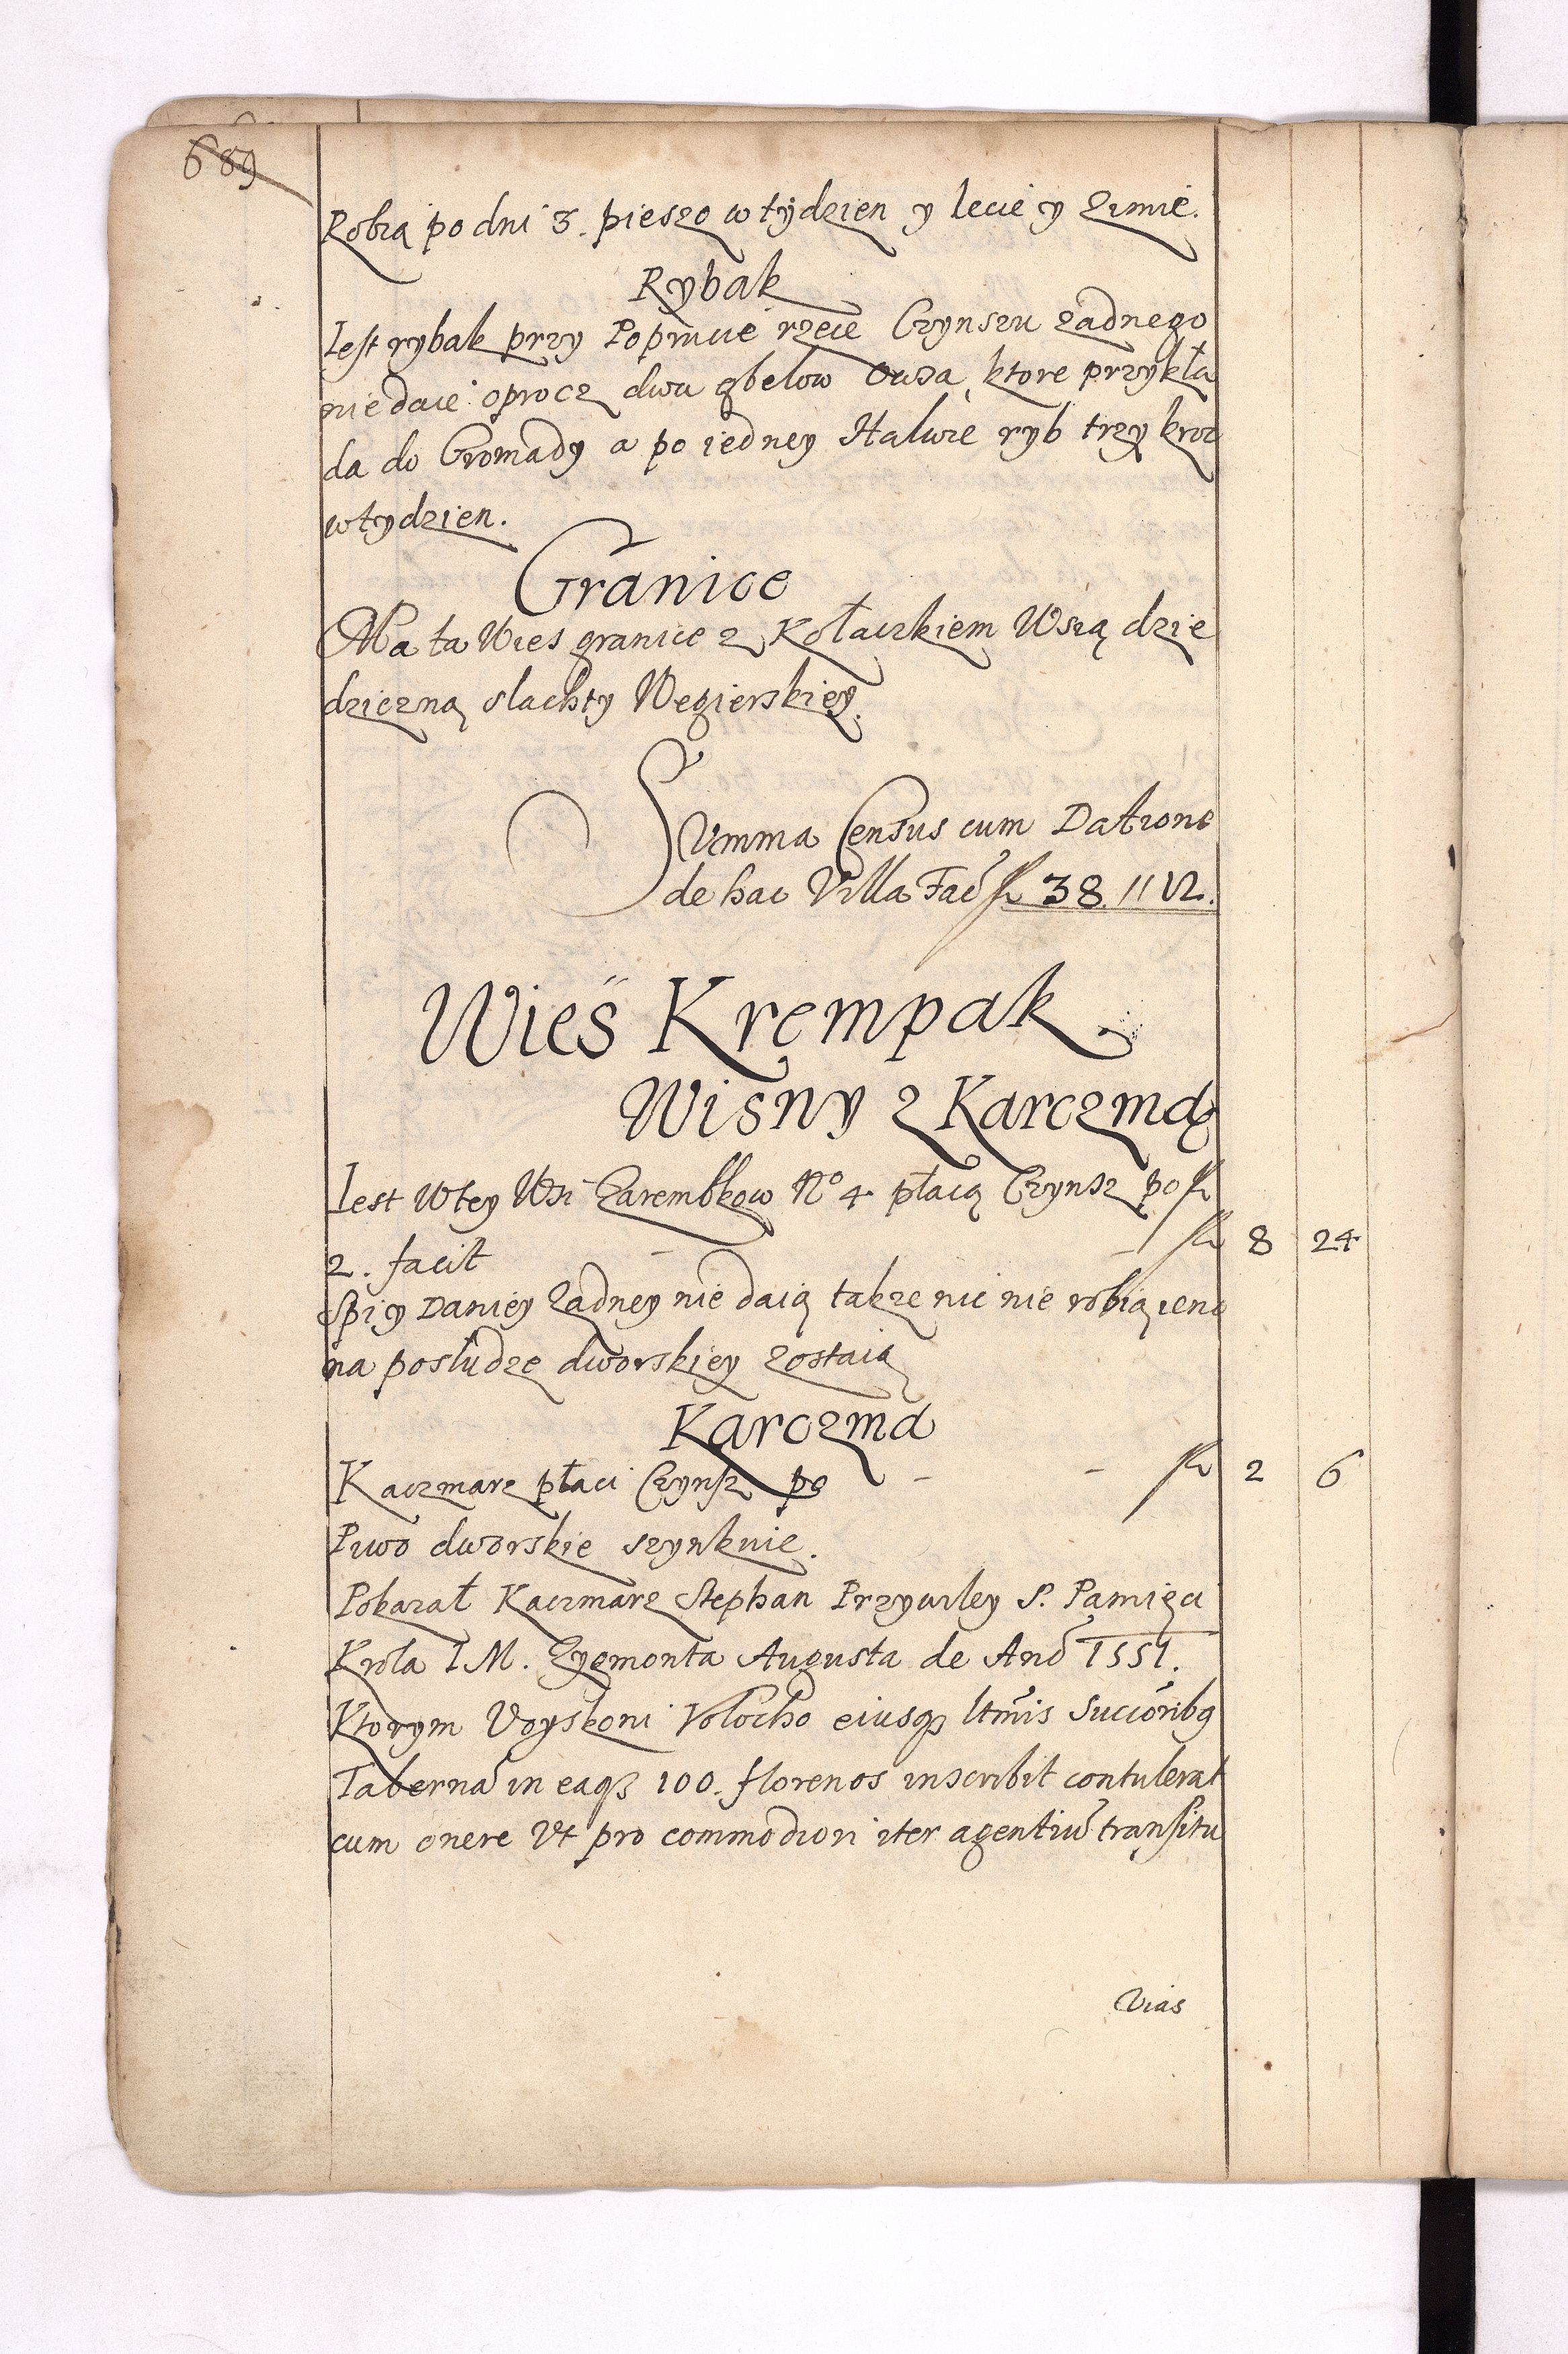 689
Robią po dni 3. pieszo w tydzien y lecie y zimie.
Rybak
Iest rybak przy Popracie rzece Czynszu zadnego
nie daie oprocz dwu gbelow Owsa, ktore przykła
da do Gromady a po iedney Halwie ryb trzy kroc
w tydzien.
Granice
Ma ta Wies granice z Kołaczkiem Wsią dzie
dziczną slachty Wegierskiey.
Summa Census cum Datione
de hac Villa Fac fl 38 // 12.
Wieś Krempak
Wisny z Karczmą
Iest w tey Wsi Zarembkow No 4 płacą Czynsz po fl
2. facit fl 8 24
Spi y Daniey Zadney nie daią takze nic nie robią ieno
na posłudze dworskiey zostaią
Karczma
Kaczmarz płaci Czynsz po - - fl 2 6
Piwo dworskie szynkuie.
Pokazał Kaczmarz Stephan Przywiley S. Pamięci
Krola I M. Zygmonta Augusta de Anō 1551.
Ktorym Voyskoni Volocho eiusqꝫ ltmīs Succōribq
Tabernā in eaqꝫ 100. florenos inscribit contulerat
cum onere Vt pro commodiori iter agentiū transitu
Vias